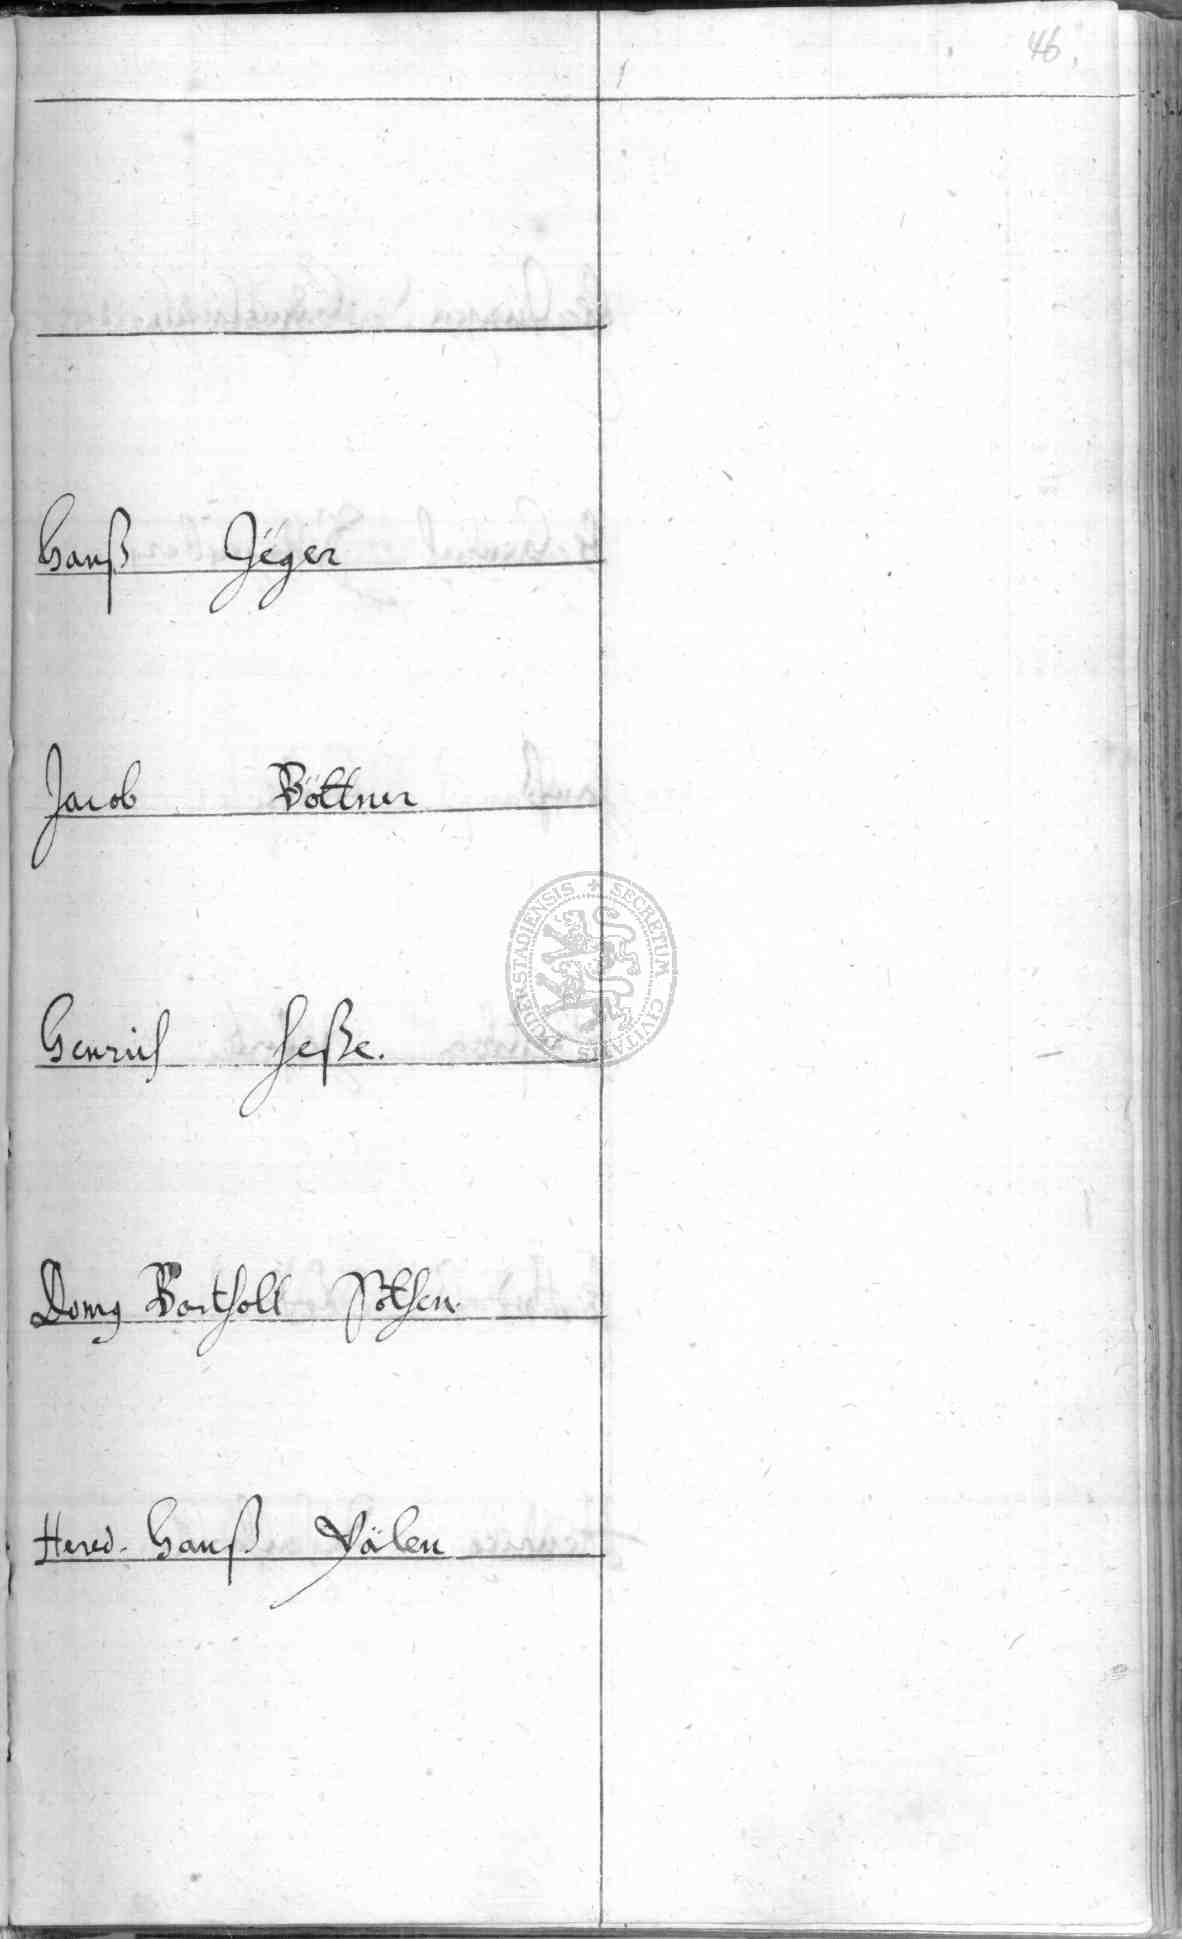 46
Hanß Jéger
Jacob Böttner
Henrich Heße.
Domg Barthold
Hered. Hanß Välen
SECRETUM CIVITATIS DUDERSTADIENSIS